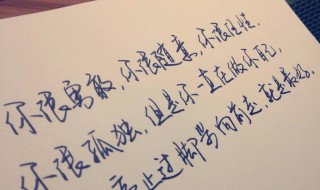 你很勇敢，你很随意，你很任性，
你很孤独，但是你一直在做你自己，
止过脚步向前走，就是最好，